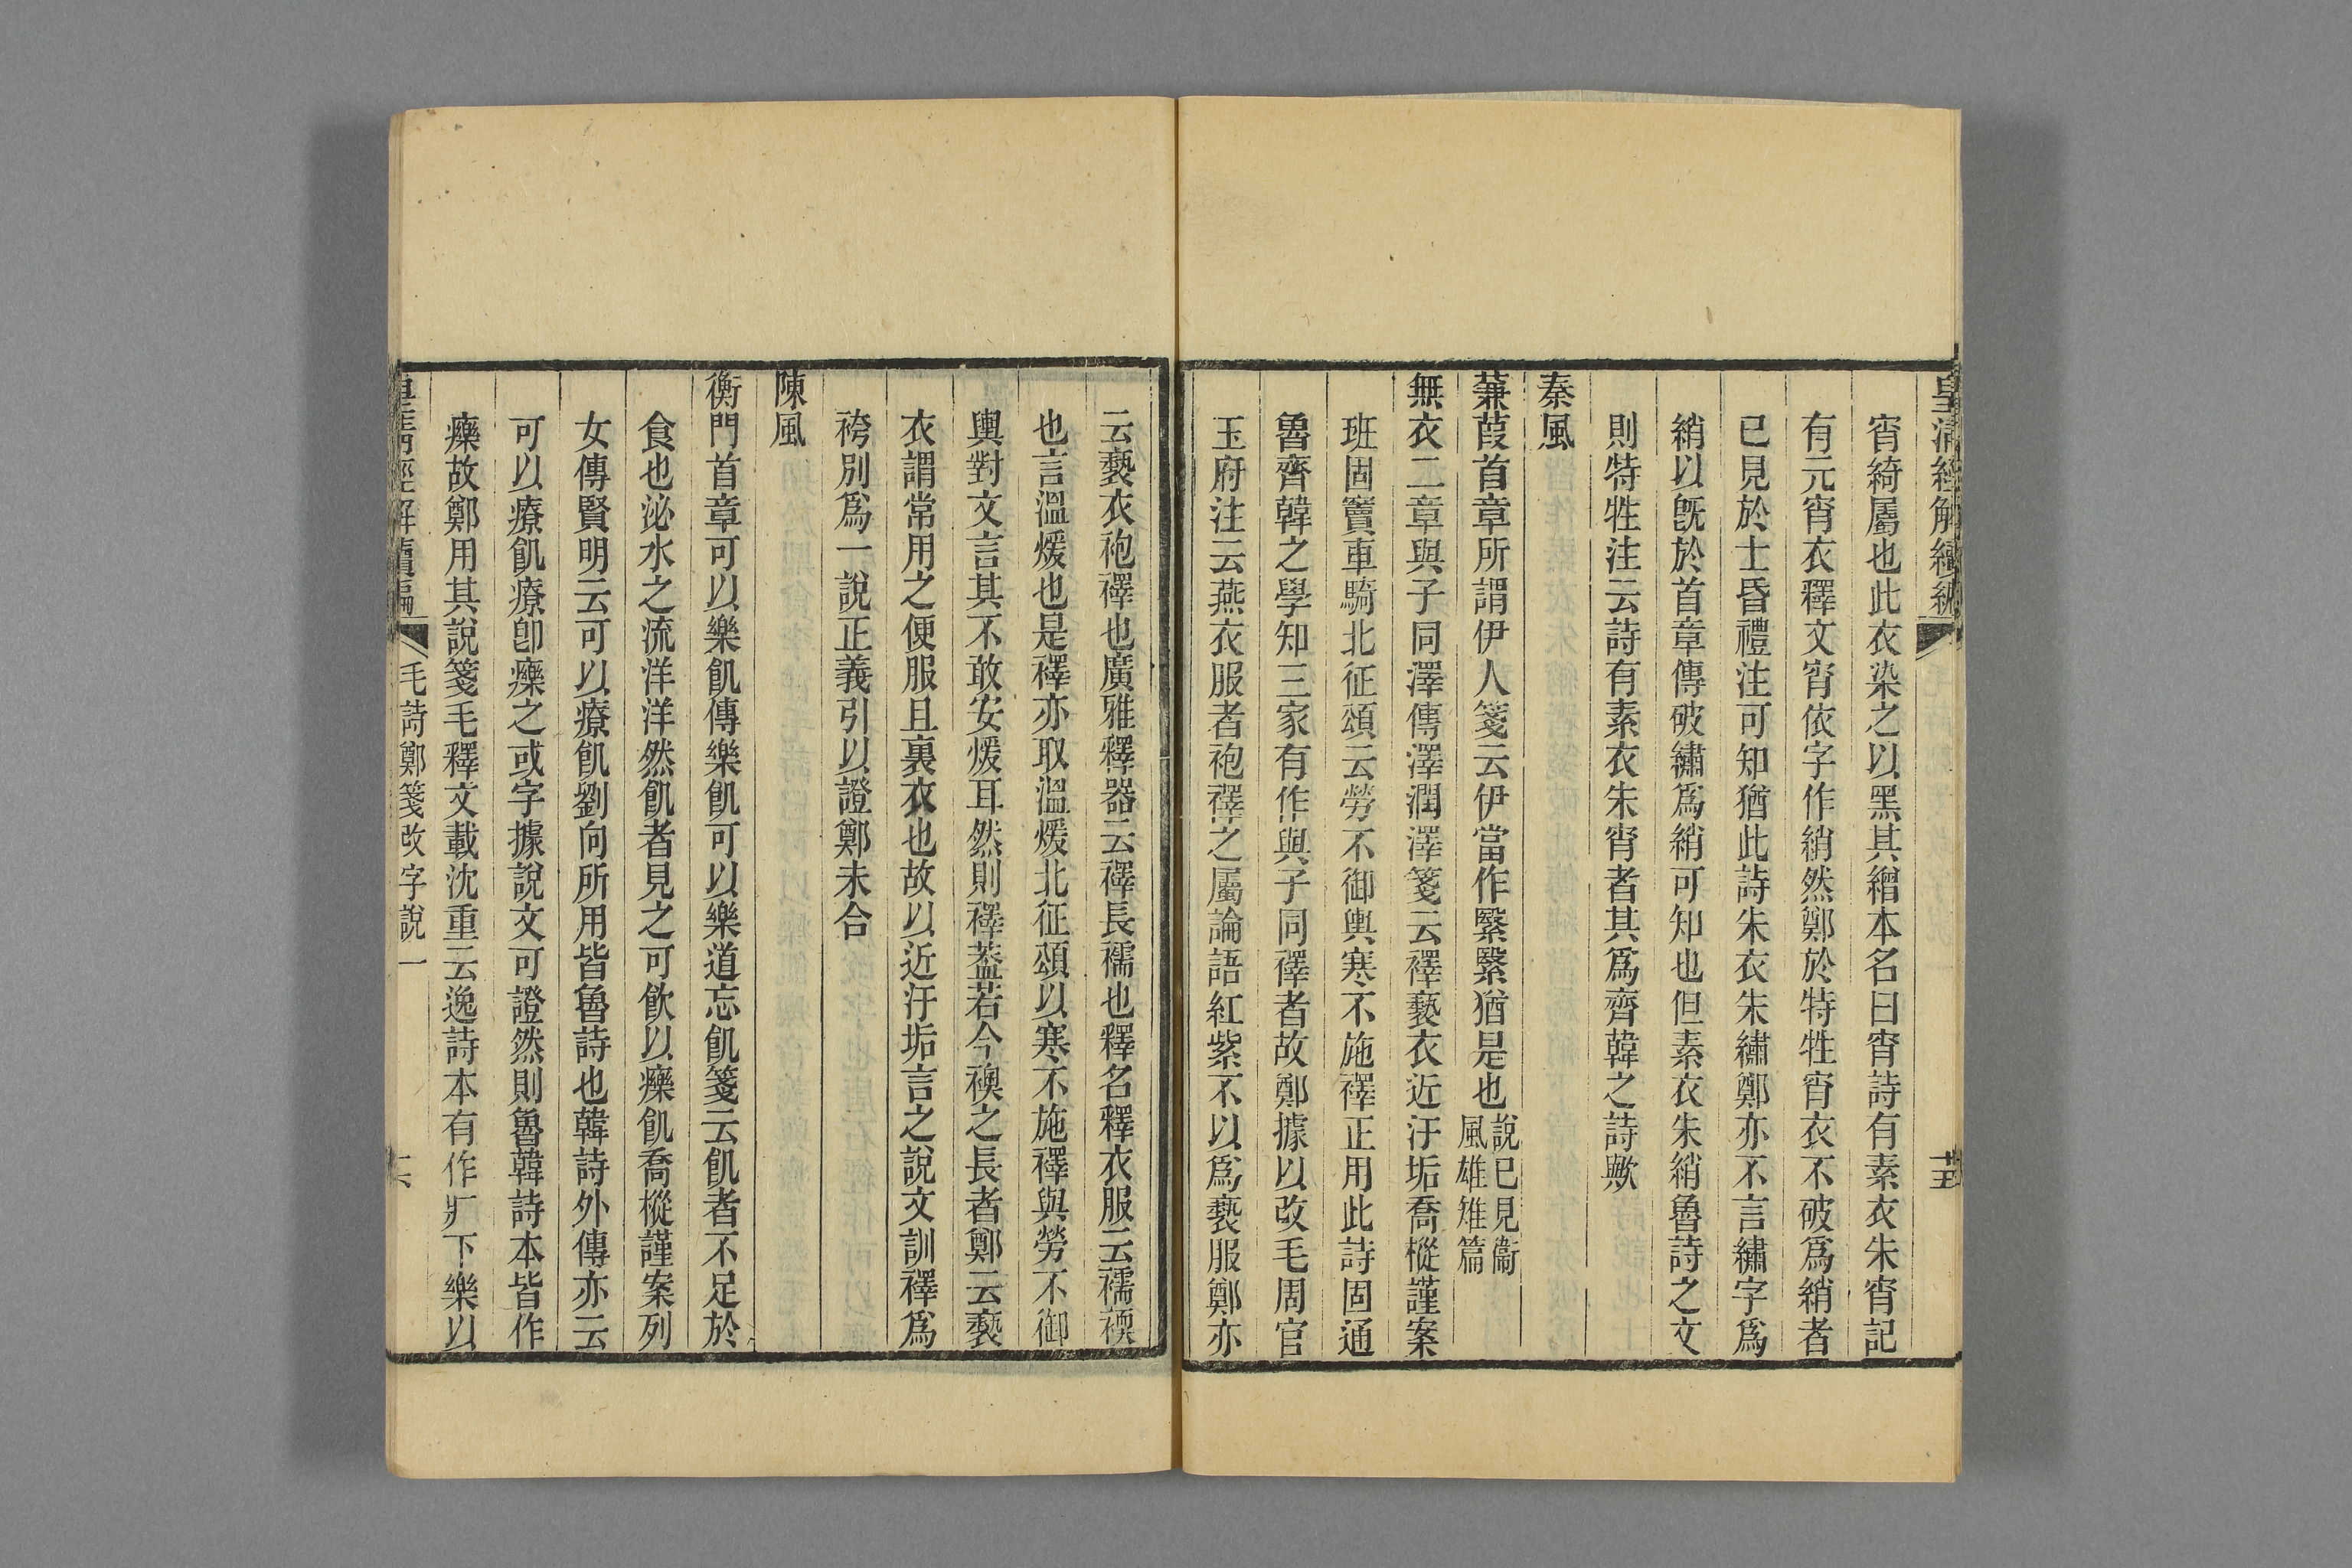 皇清經解續編
廿五
宵綺屬也此衣染之以黑其繒本名曰宵詩有素衣朱宵記
有元宵衣釋文宵依字作綃然鄭於特牲宵衣不破爲綃者
已見於士昏禮注可知猶此詩朱衣朱繡鄭亦不言繡字爲
綃以旣於首章傳破繡爲綃可知也但素衣朱綃魯詩之文
則特牲注云詩有素衣朱宵者其爲齊韓之詩歟
秦風
蒹葭首章所謂伊人箋云伊當作繄繄猶是也說已見衞
風雄雉篇
無衣二章與子同澤傳澤潤澤箋云襗褻衣近汙垢喬樅謹案
班固竇車騎北征頌云勞不御輿寒不施襗正用此詩固通
魯齊韓之學知三家有作與子同襗者故鄭據以改毛周官
玉府注云燕衣服者袍襗之屬論語紅紫不以爲褻服鄭亦
云褻衣袍襗也廣雅釋器云襗長襦也釋名釋衣服云襦㬉
也言溫煖也是襗亦取溫煖北征頌以寒不施襗與勞不御
輿對文言其不敢安煖耳然則襗蓋若今襖之長者鄭云褻
衣謂常用之便服且裏衣也故以近汙垢言之說文訓襗爲
袴別爲一說正義引以證鄭未合
陳風
衡門首章可以樂飢傳樂飢可以樂道忘飢箋云飢者不足於
食也泌水之流洋洋然飢者見之可飲以𤻲飢喬樅謹案列
女傳賢明云可以療飢劉向所用皆魯詩也韓詩外傳亦云
可以療飢療卽𤻲之或字據說文可證然則魯韓詩本皆作
𤻲故鄭用其說箋毛釋文載沈重云逸詩本有作疒下樂以
皇清經解續編
毛詩鄭箋改字說一